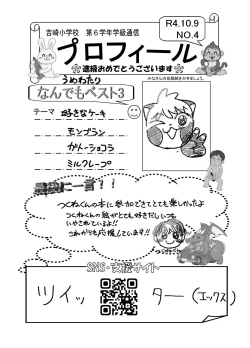 R4.10.9
NO.4
吉崎小学校 第6学年学級通信
プロフィール
連続おめでとうございます
うめわたり
なんでもベスト3
みなさんの似顔絵をかきましょう。
テーマ 好きなケーキ
モンブラン
ガトーショコラ
ミルクレープ
最後に一言??
つくねくんの本に参加できてとても楽しかったよ
つくねくんの絵がとても好きだしいつも
いやされているよ!!
これからも応援しています!!
SNS・支援サイト
ツイッター(エックス)